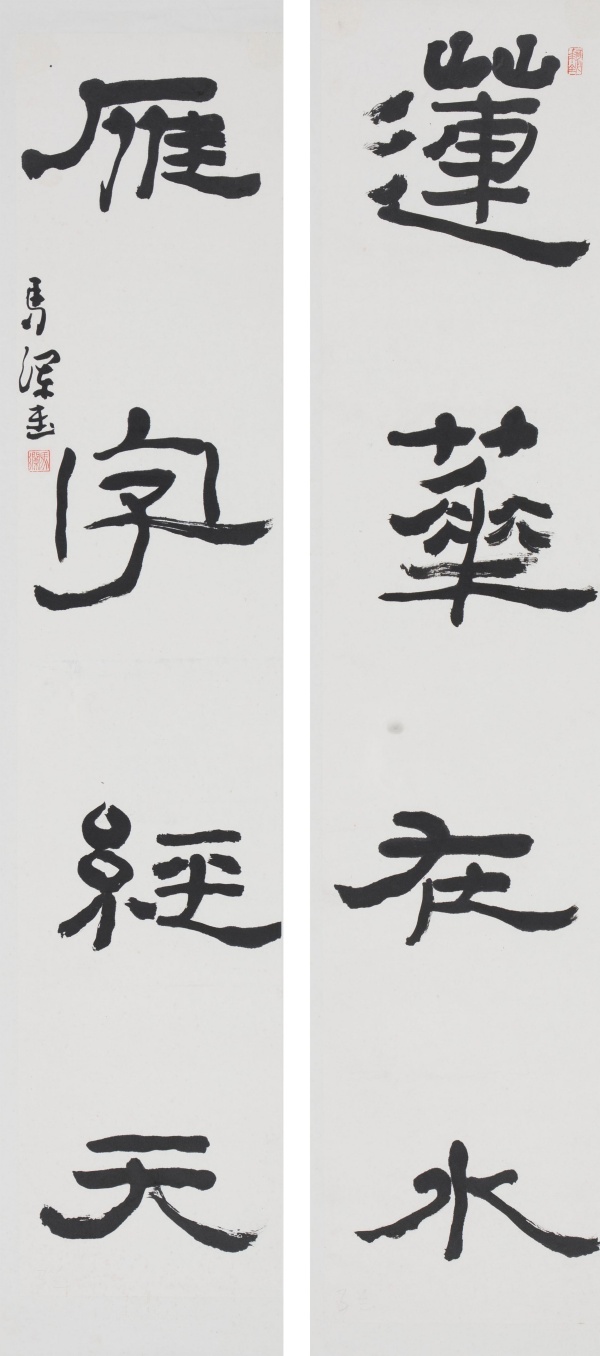 蓮華在水
雁字經天
馬